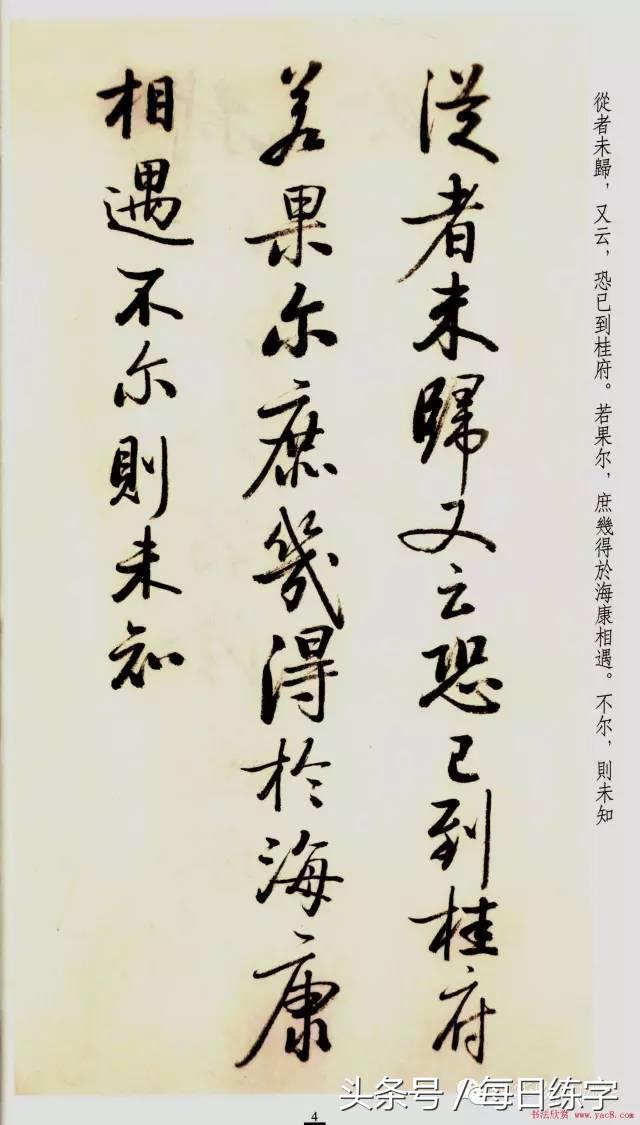 從者未歸，又云，恐已到桂府。若果尔，庶幾得於海康相遇。不尔，則未知
從者未歸又云恐已到桂府
若果尔庶幾得於海康
相遇不尔則未知
4
头条号／每日练字
书法欣赏 www.yac8.com